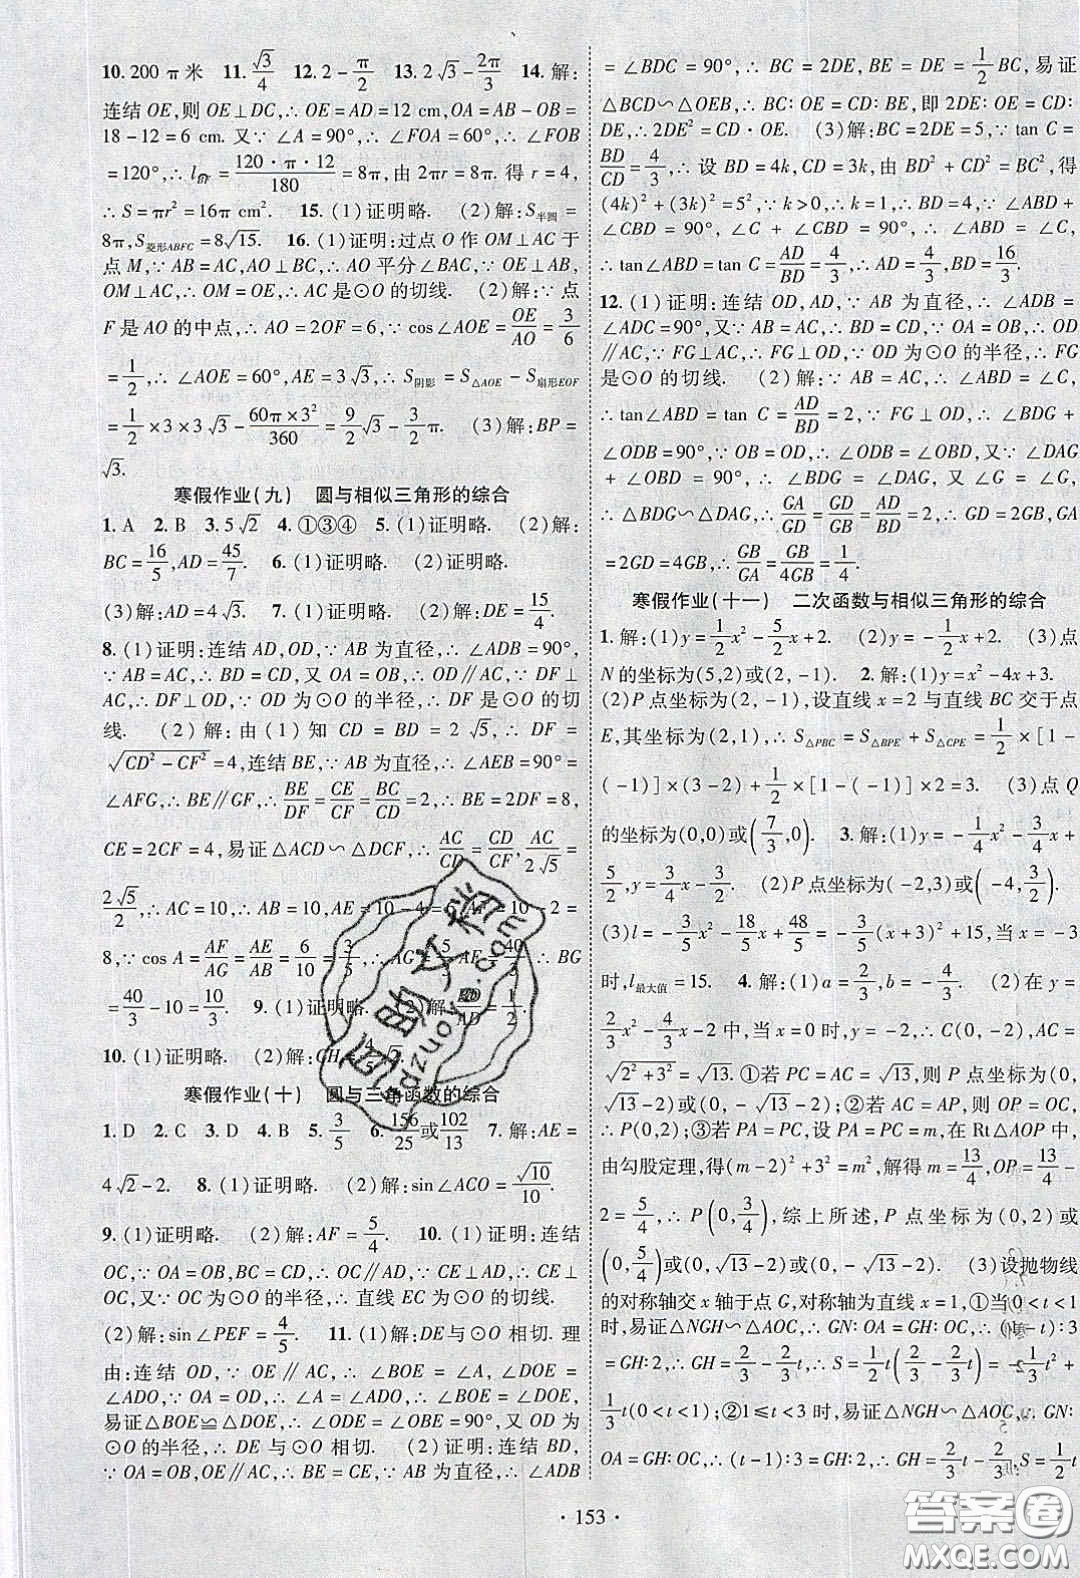 10. 200π米 11. √3/4 12. 2 - π/2 13. 2√3 - 2π/3 14. 解:
连结OE,则OE⊥DC,∴OE=AD=12 cm,OA=AB-OB=
18-12=6 cm. 又∵∠A=90°,∴∠FOA=60°,∴∠FOB
=120°,∴l=120·π·12/180=8π,由2πr=8π. 得r=4,
∴S=πr²=16π cm². 15. (1)证明略. (2)解:S半圆=
8π,S菱形ABFC=8√15. 16. (1)证明:过点O作OM⊥AC于
点M,∵AB=AC,AO⊥BC,∴AO平分∠BAC,∵OE⊥AB,
OM⊥AC,∴OM=OE,∴AC是⊙O的切线. (2)解:∵点
F是AO的中点,∴AO=2OF=6,∵cos∠AOE=OE/AO=3/6
=1/2,∴∠AOE=60°,AE=3√3,∴S阴影=S△AOE-S扇形EOF
=1/2×3×3√3-60π×3²/360=9/2√3-3/2π. (3)解:BP=
√3.
寒假作业(九) 圆与相似三角形的综合
1. A 2. B 3. 5√2 4. ①③④ 5. (1)证明略. (2)解:
BC=16/5,AD=45/7. 6. (1)证明略. (2)证明略.
(3)解:AD=4√3. 7. (1)证明略. (2)解:DE=15/4.
8. (1)证明:连结AD,OD,∵AB为直径,∴∠ADB=90°,
∵AB=AC,∴BD=CD,又OA=OB,∴OD∥AC,∵DF⊥
AC,∴DF⊥OD,∵OD为⊙O的半径,∴DF是⊙O的切
线. (2)解:由(1)知CD=BD=2√5,∴DF=
√(CD²-CF²)=4,连结BE,∵AB为直径,∴∠AEB=90°=
∠AFG,∴BE∥GF,∴BE/DF=CE/CF=BC/CD=2,∴BE=2DF=8,
CE=2CF=4,易证△ACD∽△DCF,∴AC/CD=CD/CF,AC/2√5=
2√5/2,∴AC=10,∴AB=10,AE=10-4=6,AF=10-2=
8,∵cos A=AF/AG=AE/AB=6/10=3/5,∴AG=5/3AF=40/3,∴BG
=40/3-10=10/3. 9. (1)证明略. (2)解:BD/AD=1/2.
10. (1)证明略. (2)解:CH=4/5√5.
寒假作业(十) 圆与三角函数的综合
1. D 2. C 3. D 4. B 5. 3/5 6. 156/25或102/13 7. 解:AE=
4√2-2. 8. (1)证明略. (2)解:sin∠ACO=√10/10.
9. (1)证明略. (2)解:AF=5/4. 10. (1)证明:连结
OC,∵OA=OB,BC=CD,∴OC∥AD,∵CE⊥AD,∴CE⊥
OC,又∵OC为⊙O的半径,∴直线EC为⊙O的切线.
(2)解:sin∠PEF=4/5. 11. (1)解:DE与⊙O相切. 理
由:连结OD,∵OE∥AC,∴∠BOE=∠A,∠DOE=
∠ADO,∵OA=OD,∴∠A=∠ADO,∴∠BOE=∠DOE,
易证△BOE≌△DOE,∴∠ODE=∠OBE=90°,又OD为
⊙O的半径,∴DE与⊙O相切. (2)证明:连结BD,
∵OA=OB,OE∥AC,∴BE=CE,∵AB为直径,∴∠ADB
=∠BDC=90°,∴BC=2DE,BE=DE=1/2BC,易证
△BCD∽△OEB,∴BC:OE=CD:BE,即2DE:OE=CD:
DE,∴2DE²=CD·OE. (3)解:BC=2DE=5,∵tan C=
BD/CD=4/3,∴设BD=4k,CD=3k,由BD²+CD²=BC²,得
(4k)²+(3k)²=5²,∵k>0,∴k=1,∴BD=4,∵∠ABD+
∠CBD=90°,∠C+∠CBD=90°,∴∠ABD=∠C,
∴tan∠ABD=tan C=AD/BD=4/3,∴AD=4/3,BD=16/3.
12. (1)证明:连结OD,AD,∵AB为直径,∴∠ADB=
∠ADC=90°,又∵AB=AC,∴BD=CD,∵OA=OB,∴OD
∥AC,∵FG⊥AC,∴FG⊥OD,∵OD为⊙O的半径,∴FG
是⊙O的切线. (2)解:∵AB=AC,∴∠ABD=∠C,
∴tan∠ABD=tan C=AD/BD=2,∵FG⊥OD,∴∠BDG+
∠ODB=90°,∵OB=OD,∴∠ODB=∠OBD,又∵∠DAG
+∠OBD=90°,∴∠BDG=∠DAG,又∠G=∠G,
∴△BDG∽△DAG,∴GA/GD=GD/GB=AD/BD=2,∴GD=2GB,GA
=2GD=4GB,∴GB/GA=GB/4GB=1/4.
寒假作业(十一) 二次函数与相似三角形的综合
1. 解:(1)y=1/2x²-5/2x+2. (2)y=-1/2x+2. (3)点
N的坐标为(5,2)或(2,-1). 2. 解:(1)y=x²-4x+3.
(2)P点坐标为(2,-1),设直线x=2与直线BC交于点
E,其坐标为(2,1),∴S△PBC=S△BPE+S△CPE=1/2×[1-
(-1)]×(3-2)+1/2×[1-(-1)]×2=3. (3)点Q
的坐标为(0,0)或(7/3,0). 3. 解:(1)y=-1/4x²-3/4x+
5/2,y=3/4x-3/2. (2)P点坐标为(-2,3)或(-4,3/2).
(3)l=-3/5x²-18/5x+48/5=-3/5(x+3)²+15,当x=-3
时,l最大值=15. 4. 解:(1)a=2/3,b=-4/3. (2)在y=
2/3x²-4/3x-2中,当x=0时,y=-2,∴C(0,-2),AC=
√(2²+3²)=√13.①若PC=AC,则P点坐标为(0,
√13-2)或(0,-√13-2);②若AC=AP,则OP=OC,
∴P(0,2);③若PA=PC,设PA=PC=m,在Rt△AOP中,
由勾股定理,得(m-2)²+3²=m²,解得m=13/4,OP=13/4-
2=5/4,∴P(0,3/4),综上所述,P点坐标为(0,2)或
(0,5/4)或(0,√13-2)或(0,-√13-2). (3)设抛物线
的对称轴交x轴于点G,对称轴为直线x=1,①当0<t<1
时,易证△NGH∽△AOC,∴GN:OA=GH:OC,∴(1-t):3
=GH:2,∴GH=2/3-2/3t,∴S=1/2t(2/3-2/3t)=-1/3t²+
1/3t(0<t<1);②1≤t<3时,易证△NGH∽△AOC,∴GN:
OA=GH:OC,∴(t-1):3=GH:2,∴GH=2/3t-2/3,S=1/2t
·153·
答案圈
MXQE.COM